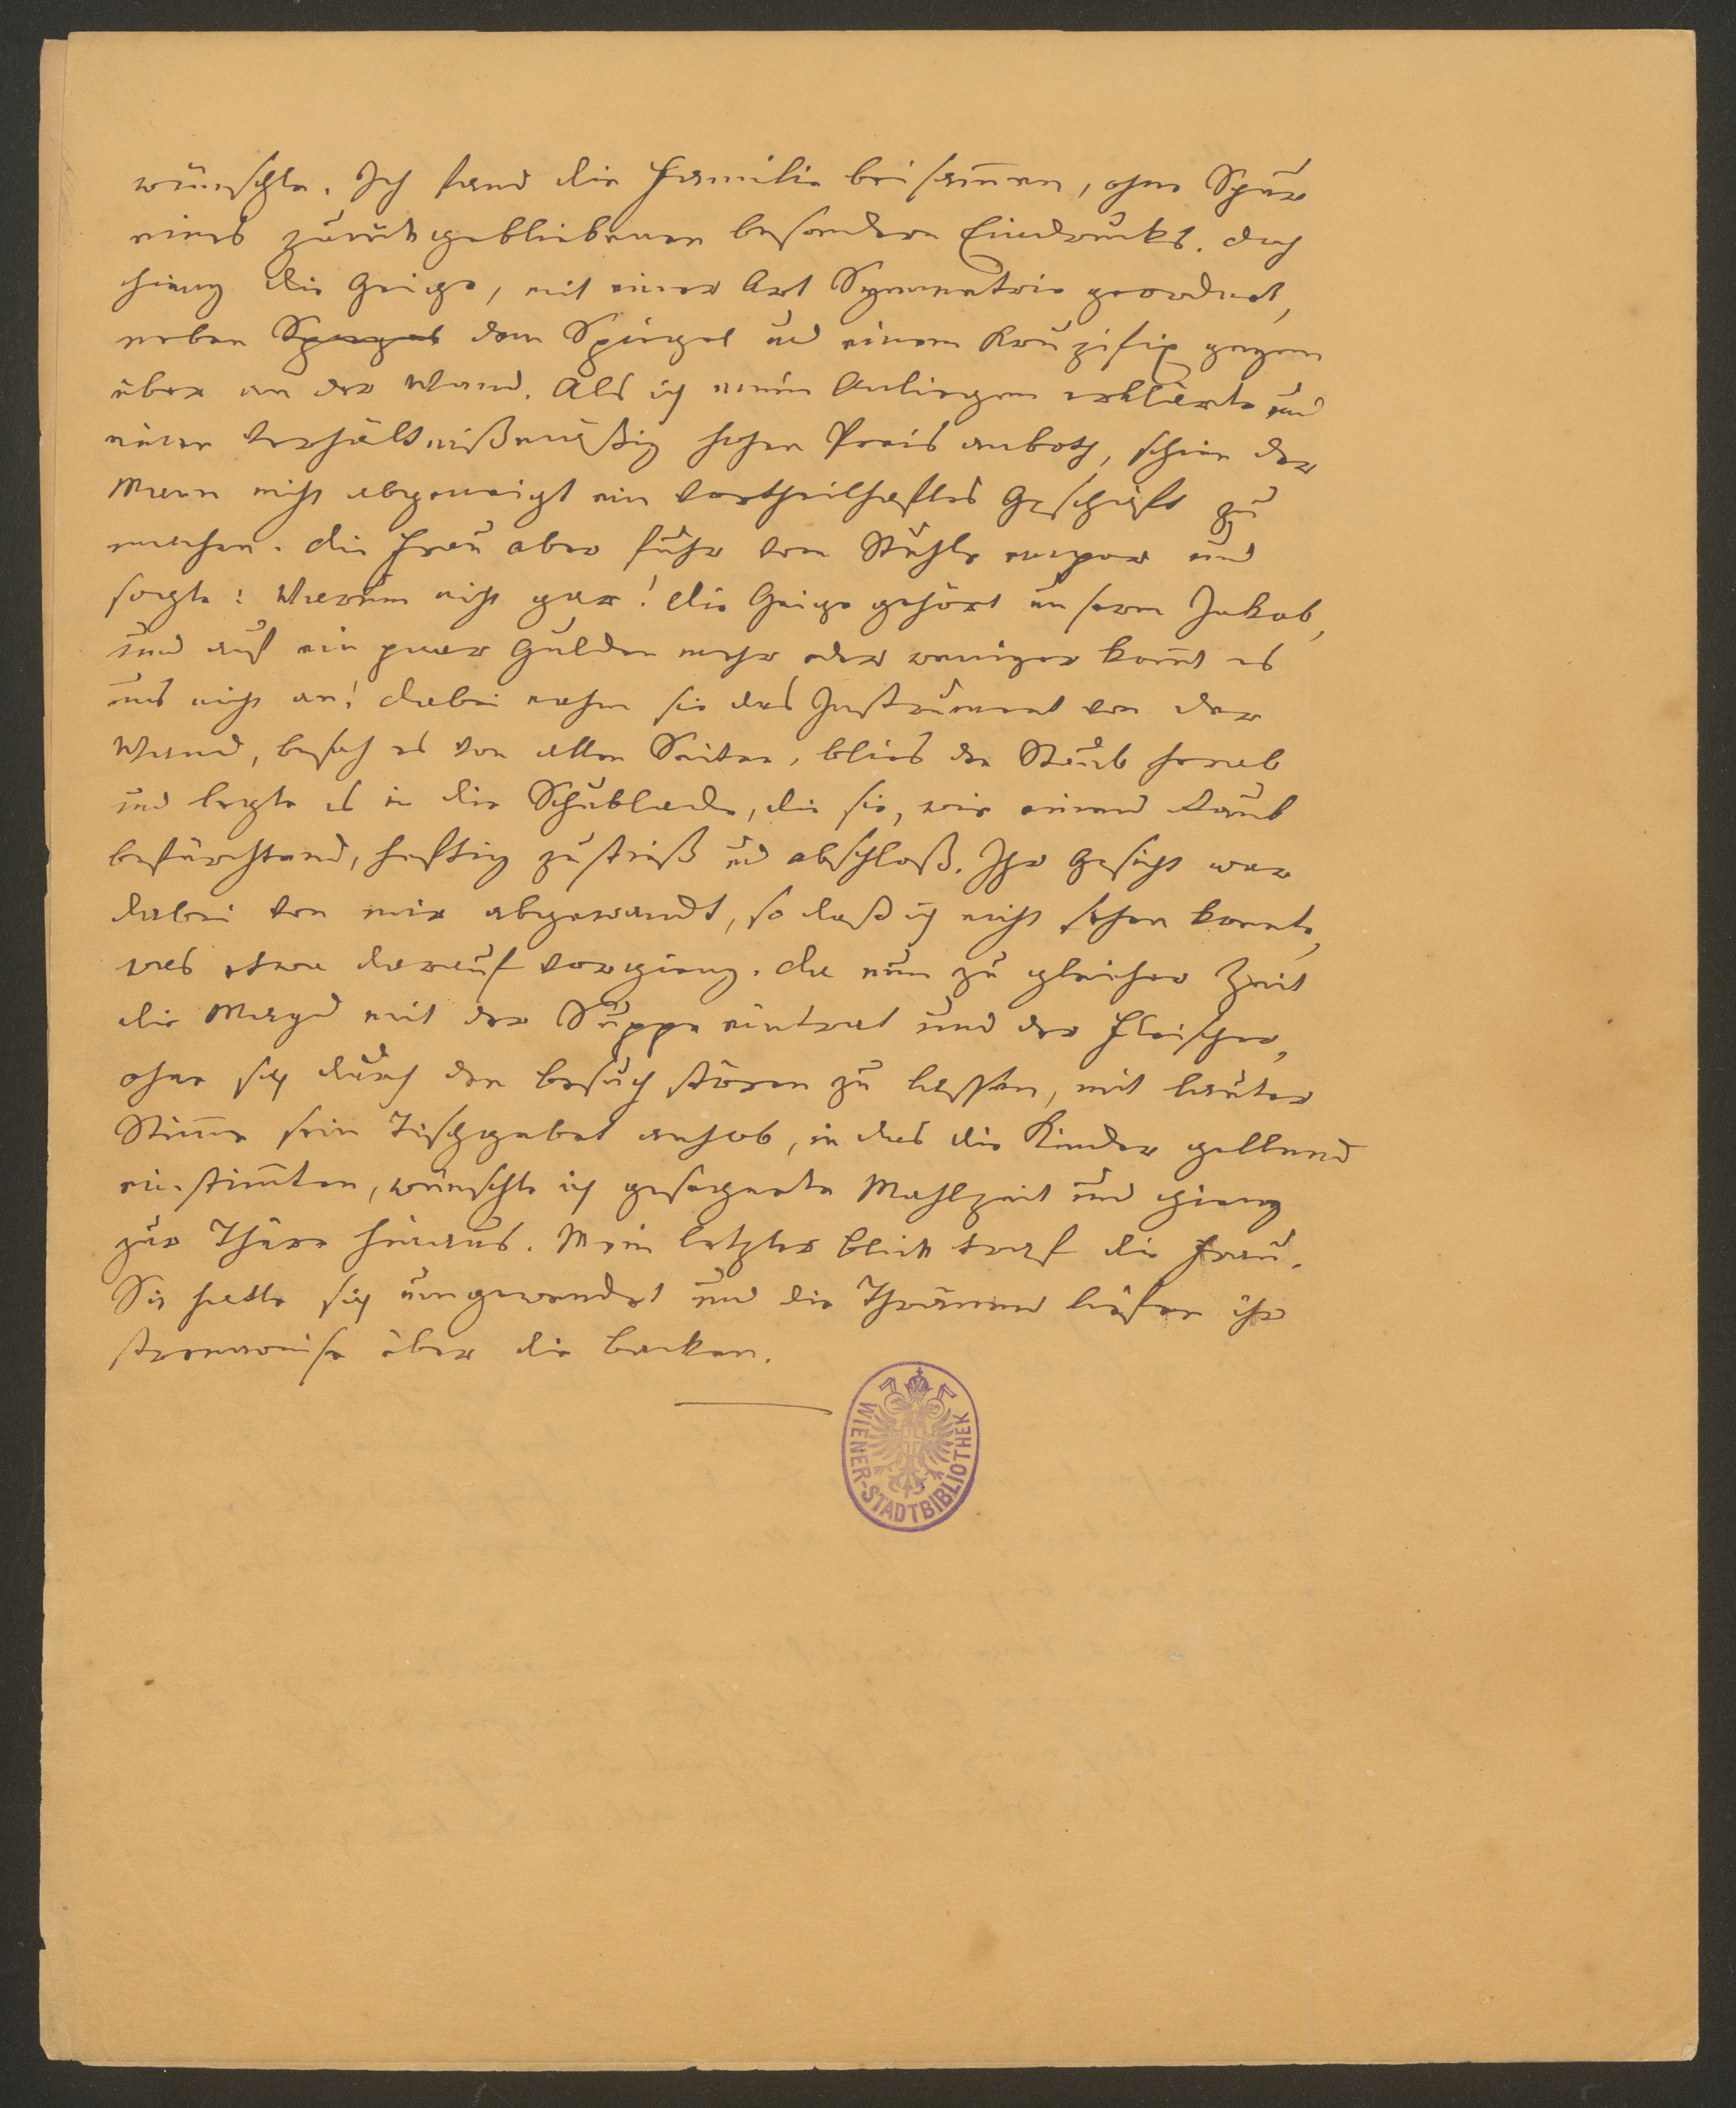 wünschte. Ich fand die Familie beisam̅en, ohne Spur
eines zurückgebliebenen besondern Eindrucks. Doch
hieng die Geige, mit einer Art Symmetrie geordnet,
neben Spiegel dem Spiegel und einem Kruzifix gegen
über an der Wand. Als ich mein Anliegen erklärte und
einen verhältnißmäßig hohen Preis anboth, schien der
Mann nicht abgeneigt ein vortheilhaftes Geschäft zu
machen. Die Frau aber fuhr vom Stuhle empor und
sagte: Warum nicht gar! Die Geige gehört unserm Jakob,
und auf ein paar Gulden mehr oder weniger kom̅t es
uns nicht an! Dabei nahm sie das Instrument von der
Wand, besah es von allen Seiten, blies den Staub herab
und legte es in die Schublade, die sie, wie einen Raub
befürchtend, heftig zustieß und abschloß. Ihr Gesicht war
dabei von mir abgewandt, so daß ich nicht sehen konnte,
was etwa darauf vorgieng. Da nun zu gleicher Zeit
die Magd mit der Suppe eintrat und der Fleischer,
ohne sich durch den Besuch stören zu lassen, mit lauter
Stim̅e sein Tischgebet anhob, in das die Kinder gellend
einstim̅ten, wünschte ich gesegnete Mahlzeit und gieng
zur Thüre hinaus. Mein letzter Blick traf die Frau.
Sie hatte sich umgewendet und die Thränen liefen ihr
stromweise über die Backen.
WIENER-STADTBIBLIOTHEK